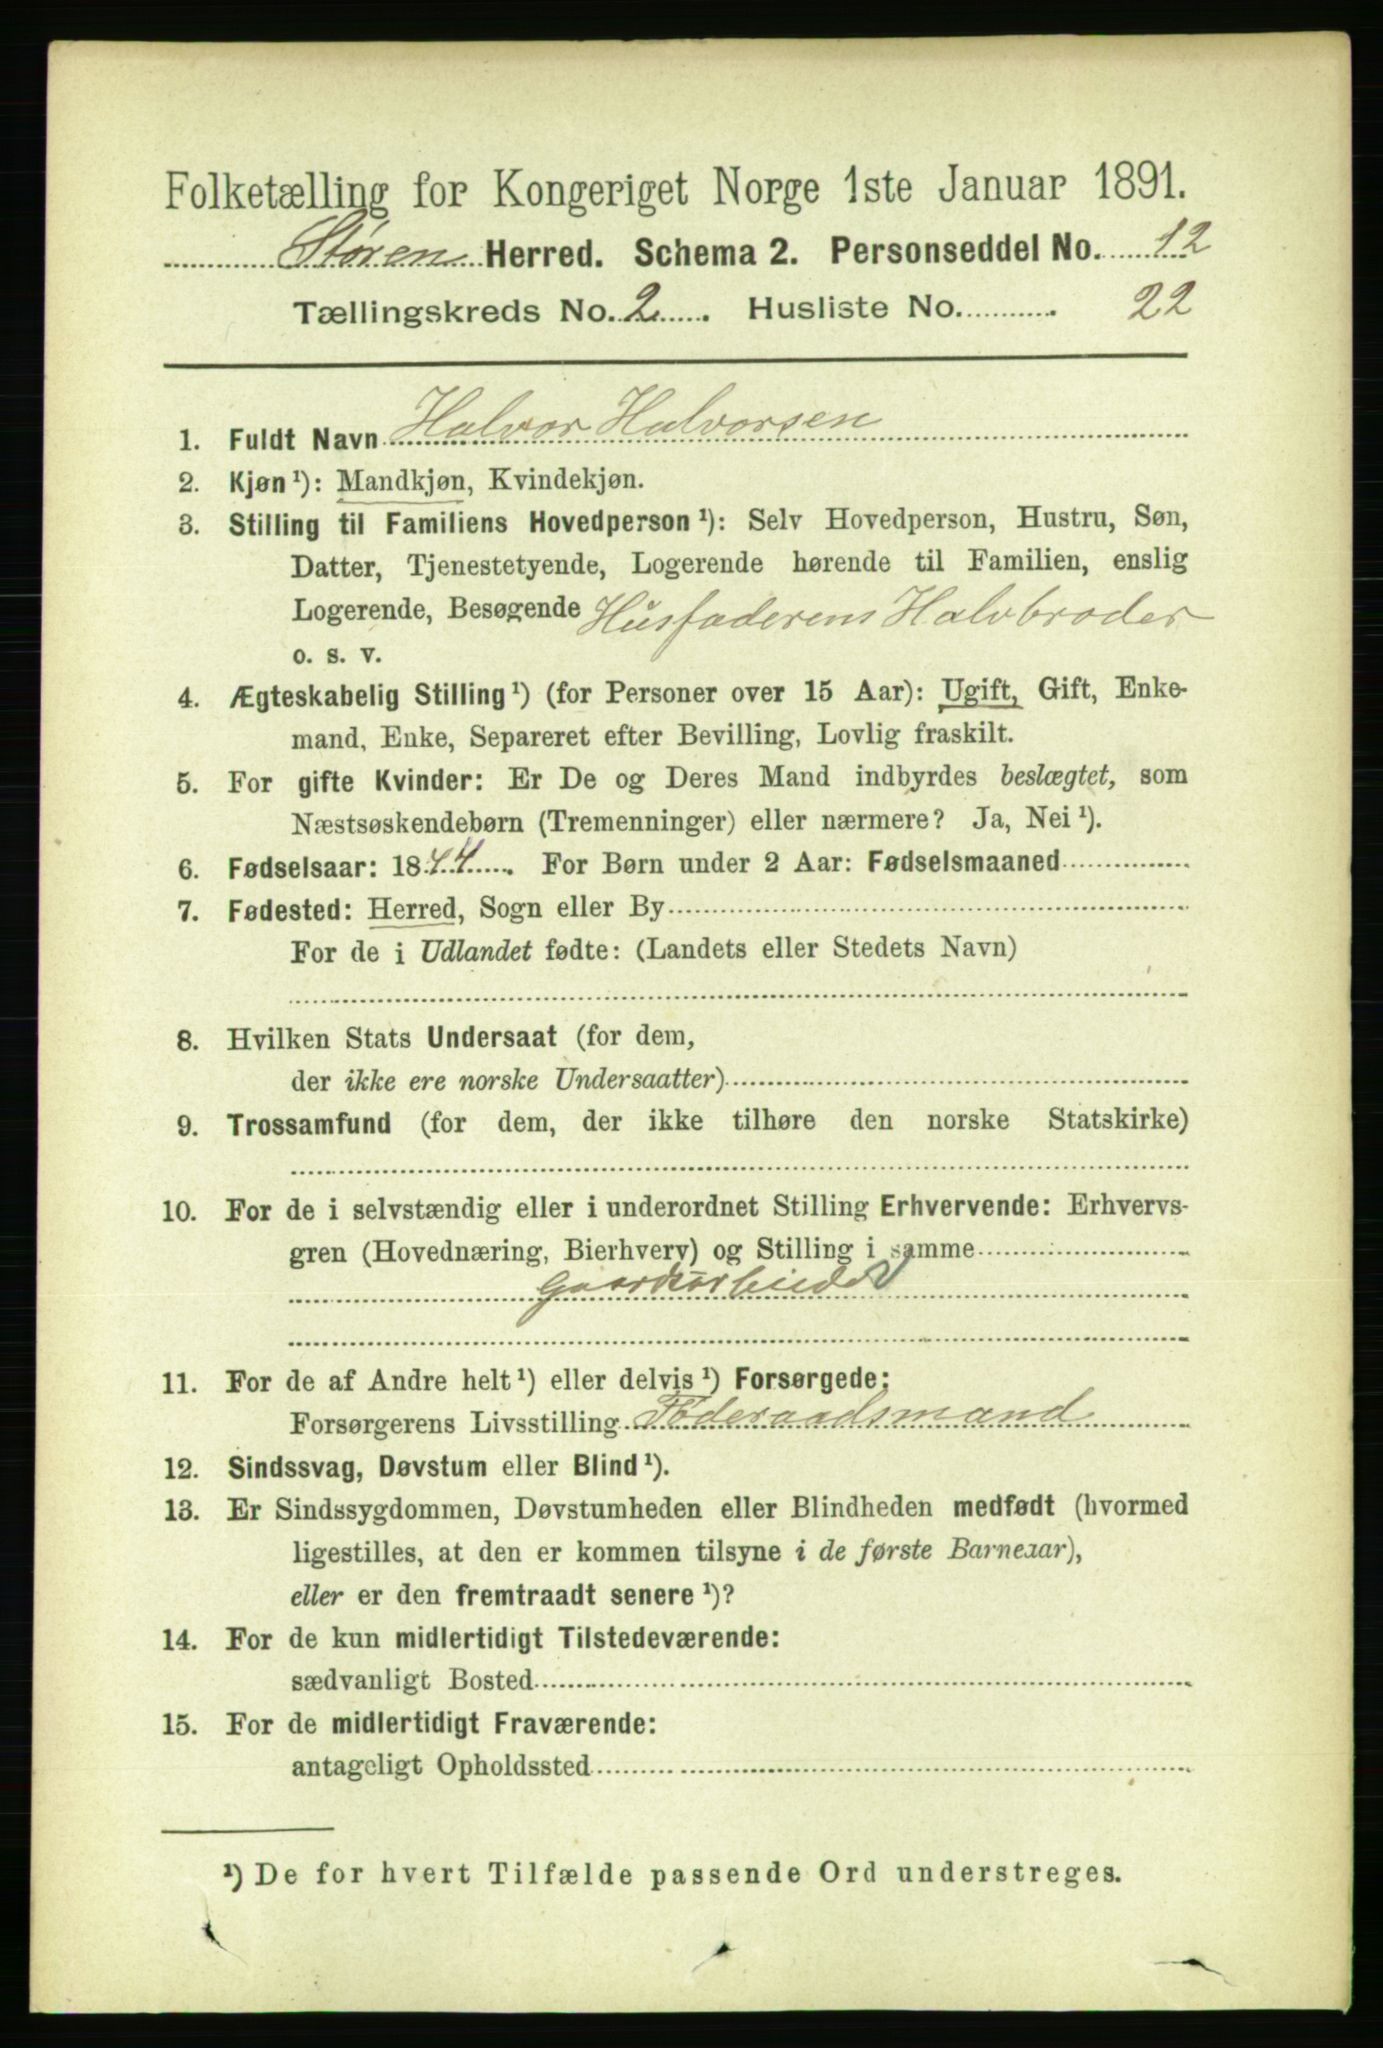 Folketælling for Kongeriget Norge 1ste Januar 1891.
Støren Herred. Schema 2. Personseddel No. 12
Tællingskreds No. 2. Husliste No. 22
1. Fuldt Navn Halvor Halvorsen
2. Kjøn ¹): Mandkjøn, Kvindekjøn.
3. Stilling til Familiens Hovedperson ¹): Selv Hovedperson, Hustru, Søn,
Datter, Tjenestetyende, Logerende hørende til Familien, enslig
Logerende, Besøgende Husfaderens Halvbroder
o. s. v.
4. Ægteskabelig Stilling ¹) (for Personer over 15 Aar): Ugift, Gift, Enke-
mand, Enke, Separeret efter Bevilling, Lovlig fraskilt.
5. For gifte Kvinder: Er De og Deres Mand indbyrdes beslægtet, som
Næstsøskendebørn (Tremenninger) eller nærmere? Ja, Nei ¹).
6. Fødselsaar: 1844. For Børn under 2 Aar: Fødselsmaaned
7. Fødested: Herred, Sogn eller By
For de i Udlandet fødte: (Landets eller Stedets Navn)
8. Hvilken Stats Undersaat (for dem,
der ikke ere norske Undersaatter)
9. Trossamfund (for dem, der ikke tilhøre den norske Statskirke)
10. For de i selvstændig eller i underordnet Stilling Erhvervende: Erhvervs-
gren (Hovednæring, Bierhverv) og Stilling i samme
Gaardsarbeider
11. For de af Andre helt ¹) eller delvis ¹) Forsørgede:
Forsørgerens Livsstilling Føderaadsmand
12. Sindssvag, Døvstum eller Blind ¹).
13. Er Sindssygdommen, Døvstumheden eller Blindheden medfødt (hvormed
ligestilles, at den er kommen tilsyne i de første Barneaar),
eller er den fremtraadt senere ¹)?
14. For de kun midlertidigt Tilstedeværende:
sædvanligt Bosted
15. For de midlertidigt Fraværende:
antageligt Opholdssted
¹) De for hvert Tilfælde passende Ord understreges.